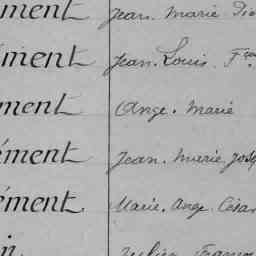 ément Jean. Marie
ément Jean. Louis. Fçois
ément Ange. Marie
ément Jean. Marie. Jos
ément Marie. Ange. César
in Julien. Franc